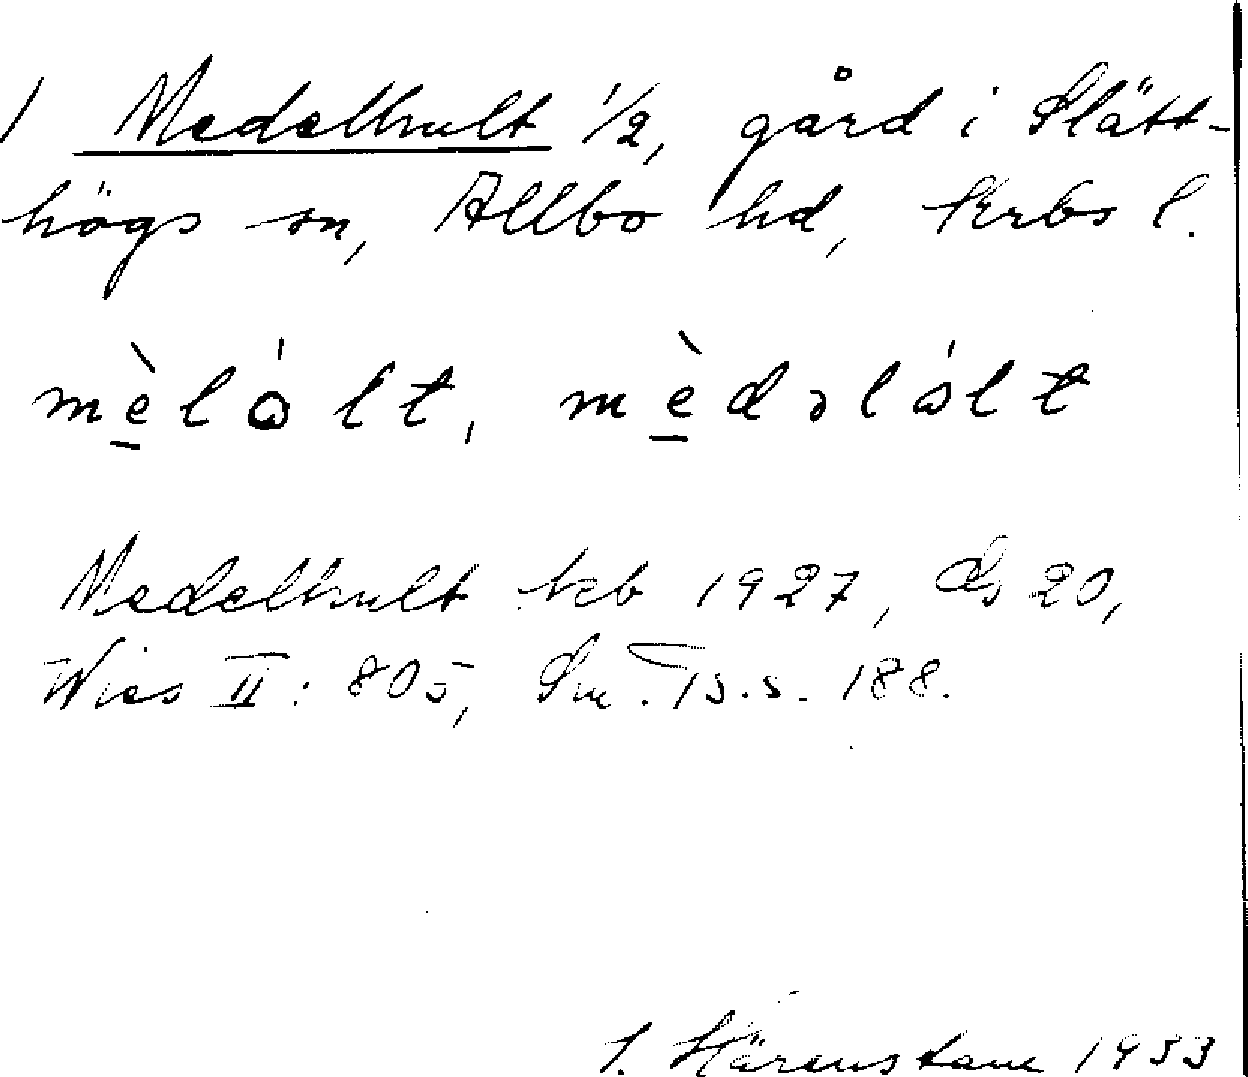 1 Medelhult 1/2, gård i Slätt-
högs sn, Allbo hd, Krbs l.
mèlólt, mèdəlólt
Medelhult kb 1927, Ds 20,
Wies II: 805, Sm. Ts. s. 188.
S. Härenstam 1933